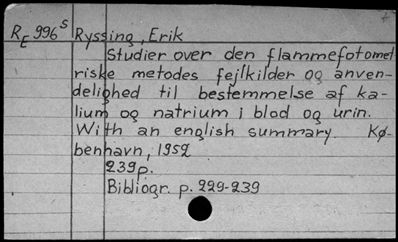 RE 996s Ryssing, Erik
Studier over den flammefotomet
riske metodes fejlkilder og anven-
delighed til bestemmelse af ka-
lium og natrium i blod og urin.
With an english summary. Kø-
benhavn, 1952
239p.
Bibliogr. p. 229-239